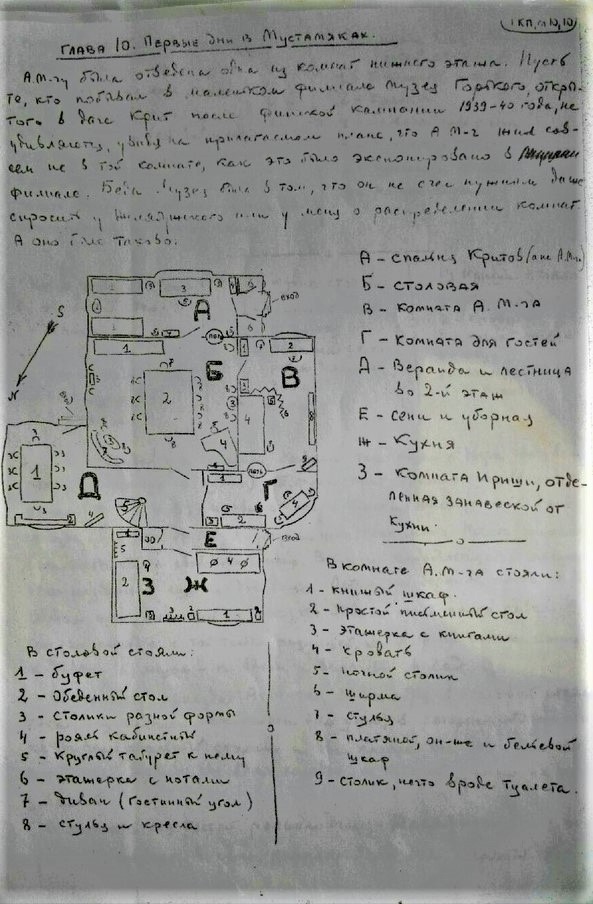 1 КП, гл 10, 10
Глава 10. Первые дни в Мустамяках.
А.М-чу была отведена одна из комнат нижнего этажа. Пусть
те, кто побывал в маленьком филиале музея Горького, откры-
того в даче Крит после финской кампании 1939-40 года, не
удивляются, увидя на прилагаемом плане, что А.М-ч жил сов-
сем не в той комнате, как это было экспонировано в
филиале. Беда музея была в том, что он не счел нужным даже
спросить у или у меня о распределении комнат.
А оно было таково:
А - спальня Критов
Б - столовая
В - комната А.М-ча
Г - комната для гостей
Д - Веранда и лестница
во 2-й этаж
Е - сени и уборная
Ж - Кухня
З - комната Ириши, отде-
ленная занавеской от
кухни.
S
N
А
Б
В
Г
Д
Е
З Ж
вход
вход
печь
печь
В комнате А.М-ча стояли:
1 - книжный шкаф.
2 - простой письменный стол
3 - этажерка с книгами
4 - кровать
5 - ночной столик
6 - ширма
7 - стулья
8 - платяной, он-же и бельевой
шкаф
9 - столик, нечто вроде туалета.
В столовой стояли:
1 - буфет
2 - Обеденный стол
3 - Столики разной формы
4 - рояль кабинетный
5 - Круглый табурет к нему
6 - этажерка с нотами
7 - диван (гостинный угол)
8 - стулья и кресла